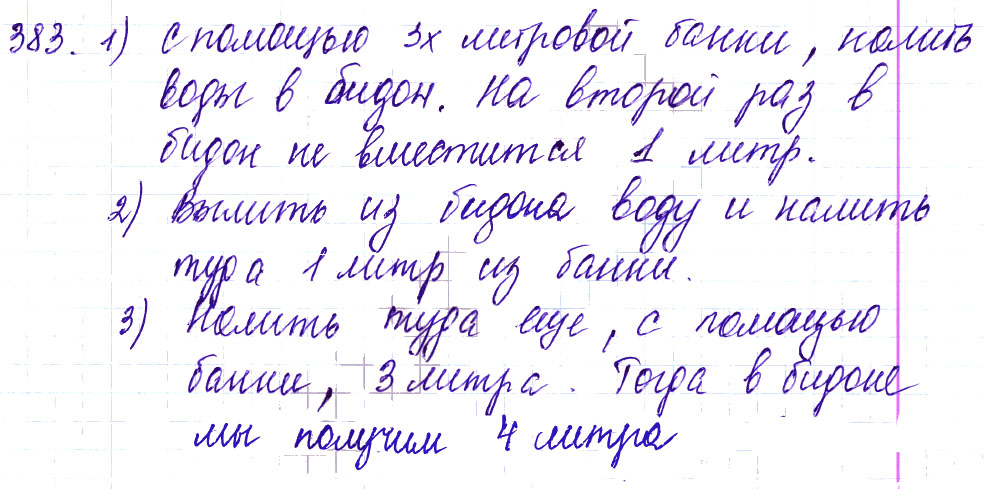 383. 1) с помощью 3х литровой банки, налить
воды в бидон. На второй раз в
бидон не вместится 1 литр.
2) Вылить из бидона воду и налить
туда 1 литр из банки.
3) Налить туда еще, с помощью
банки, 3 литра. Тогда в бидоне
мы получим 4 литра